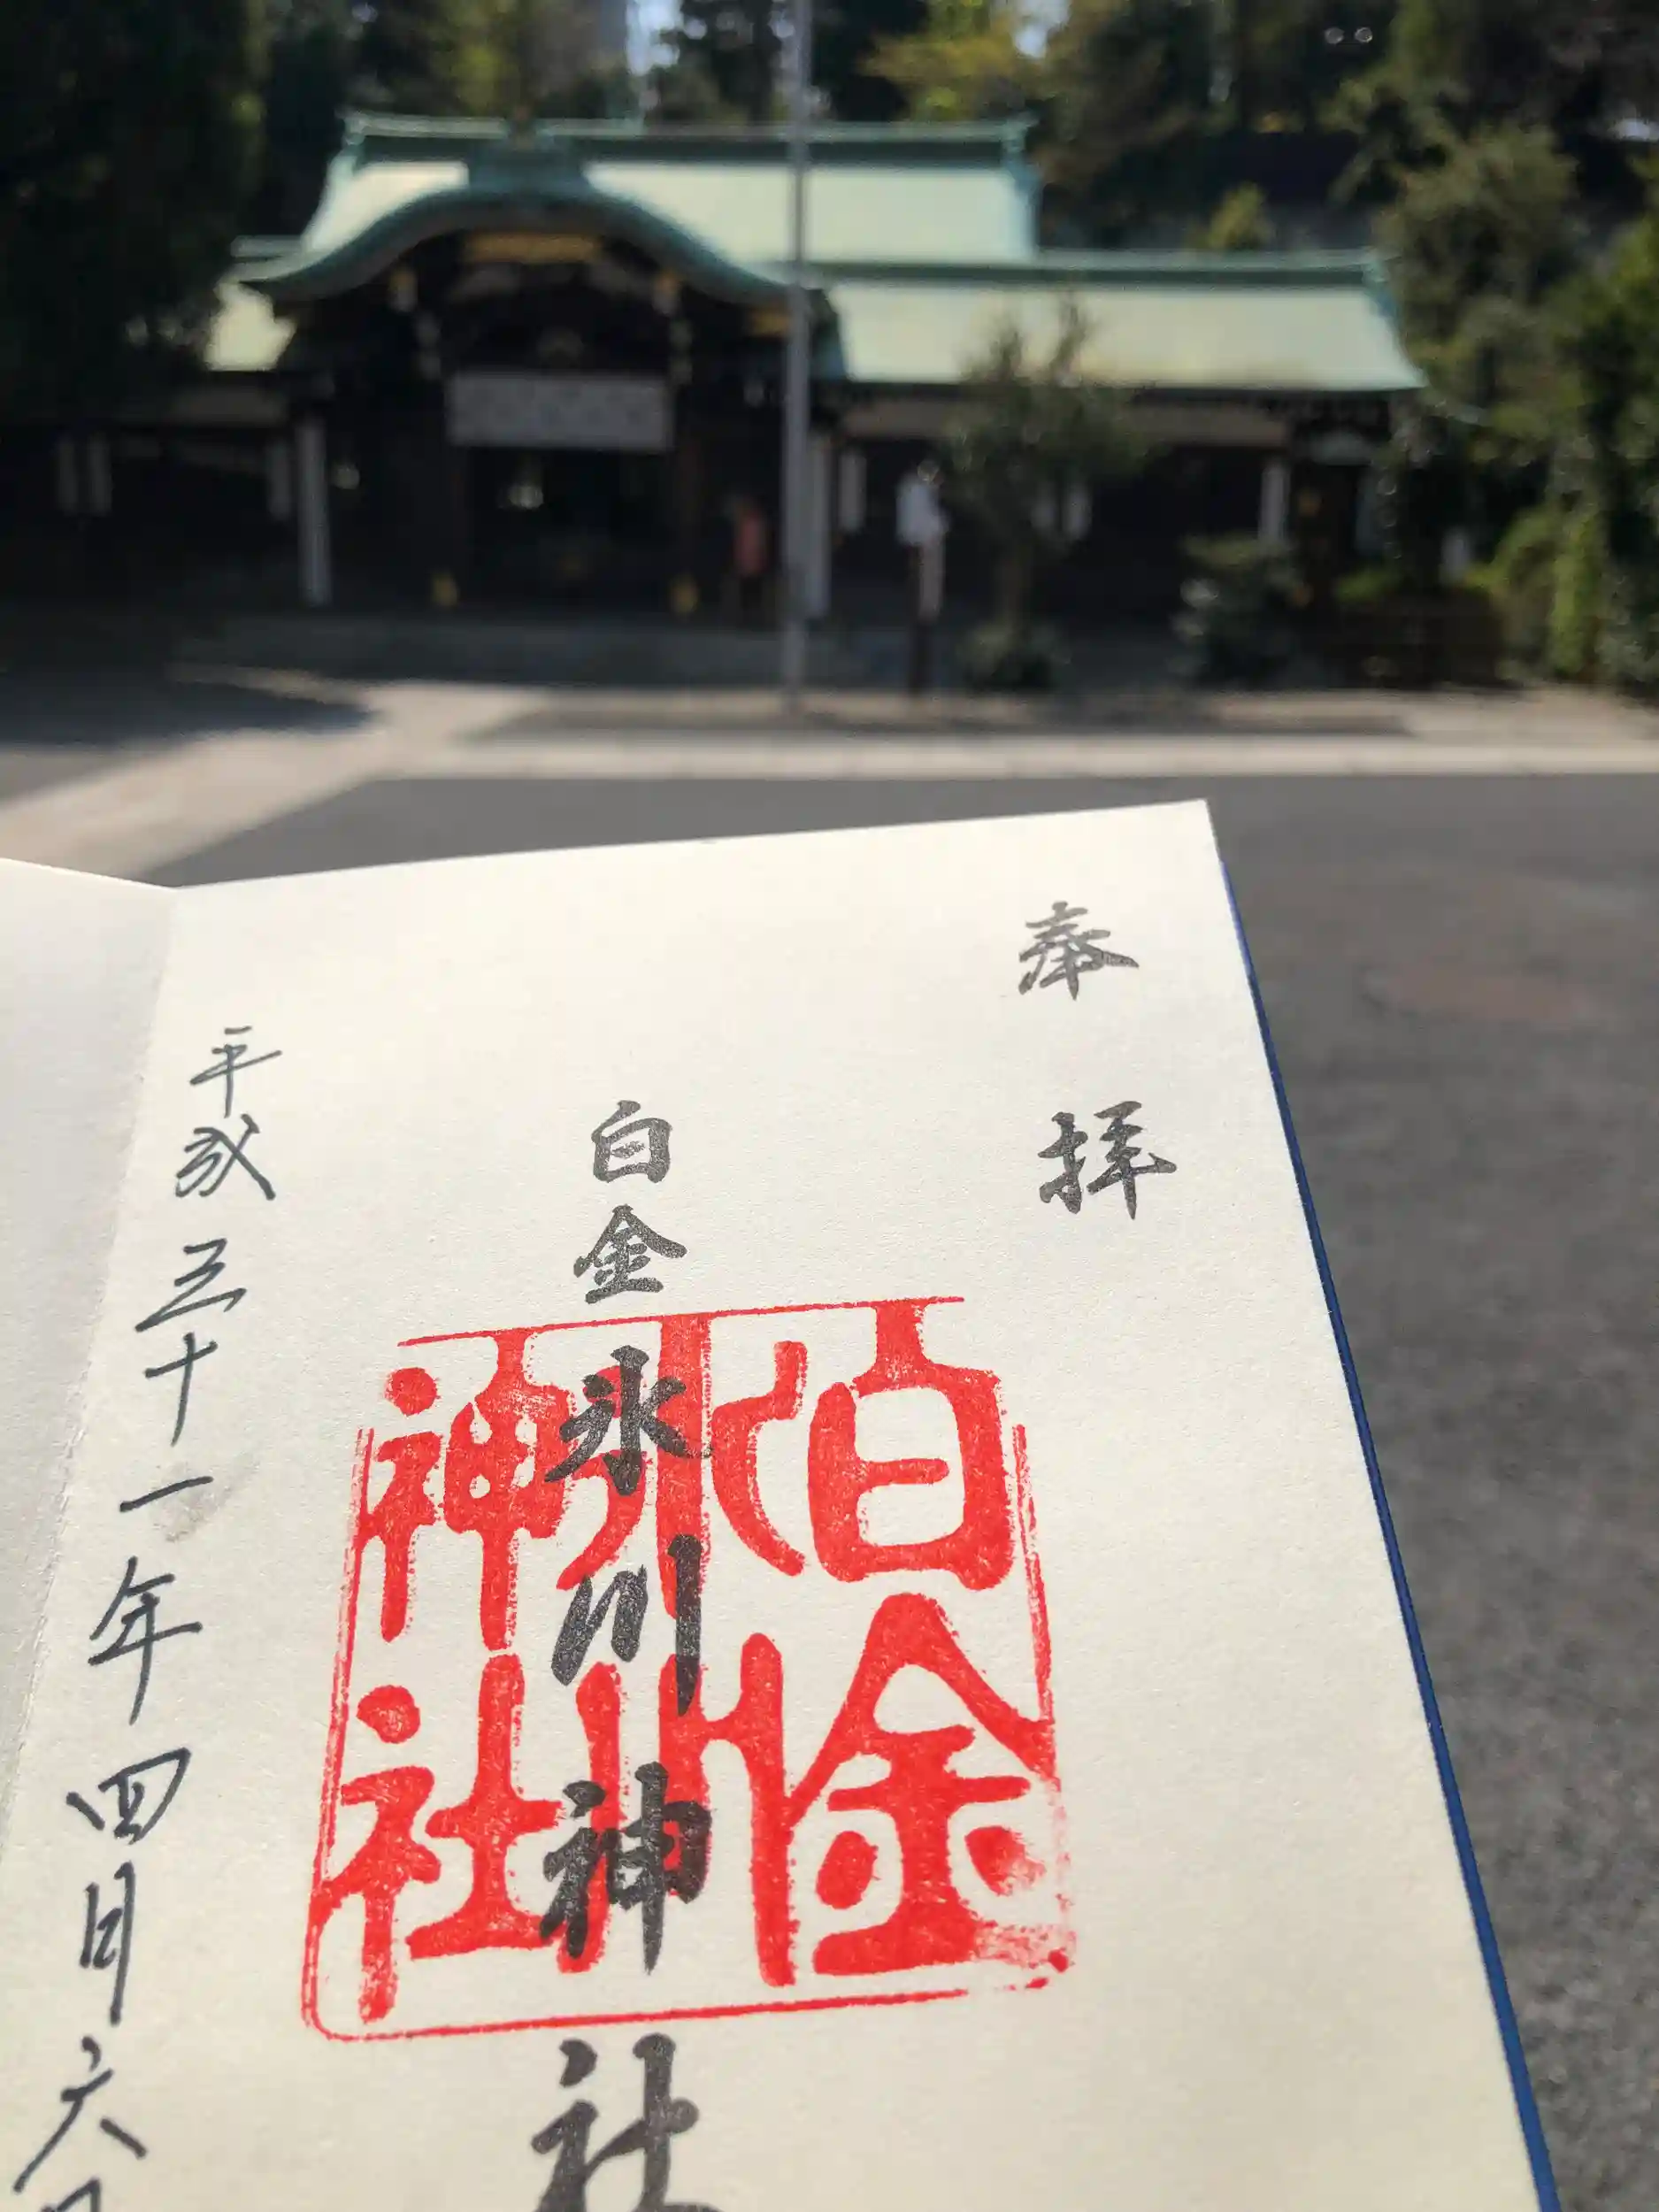 奉拝
白金氷川神社
白金
氷川
神社
平成三十一年四月六日